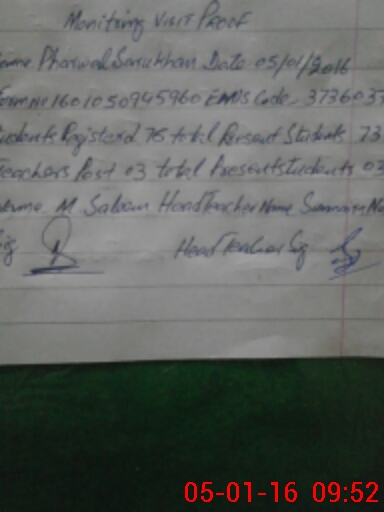 Monitring Visit Proof
Date 05/01/2016
Form No 1601050945960 EMIS Code 3736037
Students Registerd 76 total Persent Students 73
Teachers Post 03 total Present students 03
M. Saloom Head Teacher Name
Sig Head Teacher Sig
05-01-16 09:52